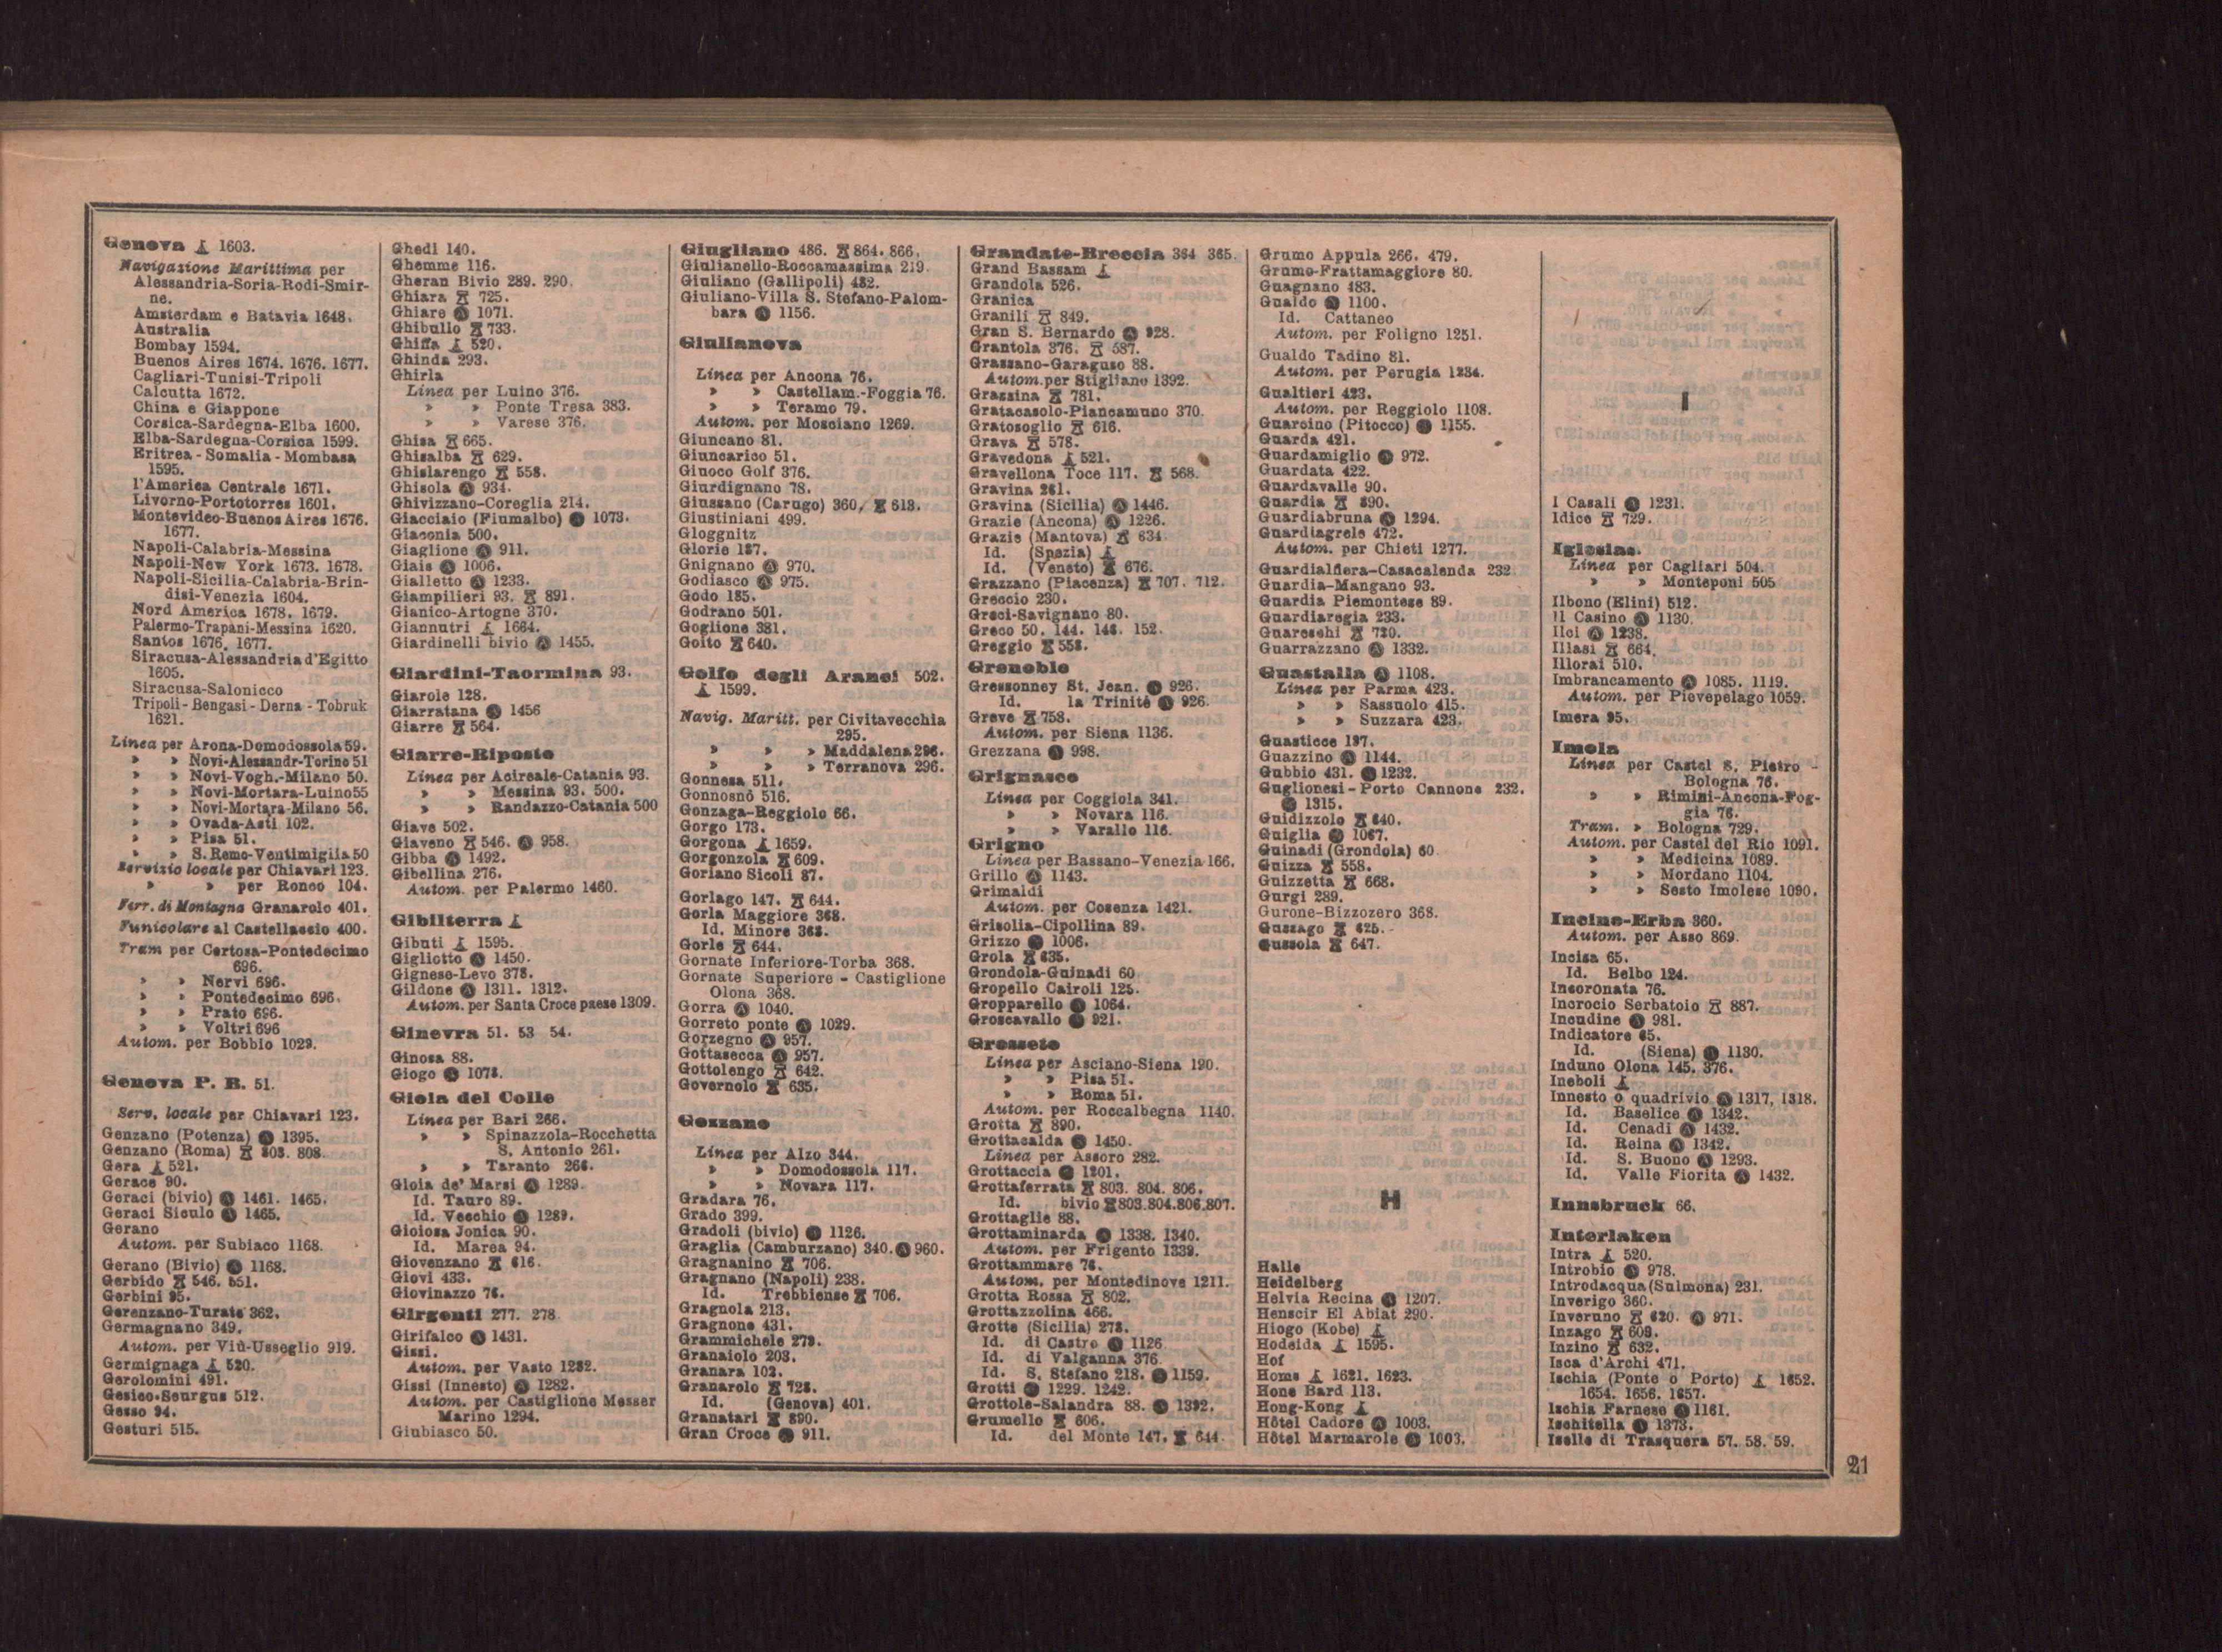 Genova 1603.
Navigazione Marittima per
Alessandria-Soria-Rodi-Smir-
ne.
Amsterdam e Batavia 1648.
Australia
Bombay 1594.
Buenos Aires 1674. 1676. 1677.
Cagliari-Tunisi-Tripoli
Calcutta 1672.
China e Giappone
Corsica-Sardegna-Elba 1600.
Elba-Sardegna-Corsica 1599.
Eritrea - Somalia - Mombasa
1595.
l'America Centrale 1671.
Livorno-Portotorres 1601.
Montevideo-Buenos Aires 1676.
1677.
Napoli-Calabria-Messina
Napoli-New York 1673. 1678.
Napoli-Sicilia-Calabria-Brin-
disi-Venezia 1604.
Nord America 1678. 1679.
Palermo-Trapani-Messina 1620.
Santos 1676. 1677.
Siracusa-Alessandria d'Egitto
1605.
Siracusa-Salonicco
Tripoli - Bengasi - Derna - Tobruk
1621.
Linea per Arona-Domodossola 59.
» » Novi-Alessandr-Torino 51
» » Novi-Vogh.-Milano 50.
» » Novi-Mortara-Luino 55
» » Novi-Mortara-Milano 56.
» » Ovada-Asti 102.
» » Pisa 51.
» » S. Remo-Ventimiglia 50
Servizio locale per Chiavari 123.
» » per Ronco 104.
Ferr. di Montagna Granarolo 401.
Funicolare al Castellaccio 400.
Tram per Certosa-Pontedecimo
696.
» » Nervi 696.
» » Pontedecimo 696.
» » Prato 696.
» » Voltri 696
Autom. per Bobbio 1029.
Genova P. B. 51.
Serv. locale per Chiavari 123.
Genzano (Potenza) Ⓐ 1395.
Genzano (Roma) 803. 808.
Gera 521.
Gerace 90.
Geraci (bivio) Ⓐ 1461. 1465.
Geraci Siculo Ⓐ 1465.
Gerano
Autom. per Subiaco 1168.
Gerano (Bivio) Ⓐ 1168.
Gerbido 546. 551.
Gerbini 95.
Gerenzano-Turate 362.
Germagnano 349.
Autom. per Viù-Usseglio 919.
Germignaga 520.
Gerolomini 491.
Gesico-Seurgus 512.
Gesso 94.
Gesturi 515.
Ghedi 140.
Ghemme 116.
Gheran Bivio 289. 290.
Ghiara 725.
Ghiare Ⓐ 1071.
Ghibullo 733.
Ghiffa 520.
Ghinda 293.
Ghirla
Linea per Luino 376.
» » Ponte Tresa 383.
» » Varese 376.
Ghisa 665.
Ghisalba 629.
Ghislarengo 558.
Ghisola Ⓐ 934.
Ghivizzano-Coreglia 214.
Giacciaio (Fiumalbo) Ⓐ 1073.
Giaconia 500.
Giaglione Ⓐ 911.
Giais Ⓐ 1006.
Gialletto Ⓐ 1233.
Giampilieri 93. 891.
Gianico-Artogne 370.
Giannutri 1664.
Giardinelli bivio Ⓐ 1455.
Giardini-Taormina 93.
Giarole 128.
Giarratana Ⓐ 1456
Giarre 564.
Giarre-Riposto
Linea per Acireale-Catania 93.
» » Messina 93. 500.
» » Randazzo-Catania 500
Giave 502.
Giaveno 546. Ⓐ 958.
Gibba Ⓐ 1492.
Gibellina 276.
Autom. per Palermo 1460.
Gibilterra
Gibuti 1595.
Gigliotto Ⓐ 1450.
Gignese-Levo 378.
Gildone Ⓐ 1311. 1312.
Autom. per Santa Croce paese 1309.
Ginevra 51. 53 54.
Ginosa 88.
Giogo Ⓐ 1078.
Gioia del Colle
Linea per Bari 266.
» » Spinazzola-Rocchetta
S. Antonio 261.
» » Taranto 266.
Gioia de' Marsi Ⓐ 1289.
Id. Tauro 89.
Id. Vecchio Ⓐ 1289.
Gioiosa Jonica 90.
Id. Marea 94.
Giovenzano 616.
Giovi 433.
Giovinazzo 76.
Girgenti 277. 278
Girifalco Ⓐ 1431.
Gissi.
Autom. per Vasto 1282.
Gissi (Innesto) Ⓐ 1282.
Autom. per Castiglione Messer
Marino 1294.
Giubiasco 50.
Giugliano 486. 864. 866.
Giulianello-Roccamassima 219.
Giuliano (Gallipoli) 482.
Giuliano-Villa S. Stefano-Palom-
bara Ⓐ 1156.
Giulianova
Linea per Ancona 76.
» » Castellam.-Foggia 76.
» » Teramo 79.
Autom. per Mosciano 1269.
Giuncano 81.
Giuncarico 51.
Giuoco Golf 376.
Giurdignano 78.
Giussano (Carugo) 360, 618.
Giustiniani 499.
Gloggnitz
Glorie 187.
Gnignano Ⓐ 970.
Godiasco Ⓐ 975.
Godo 185.
Godrano 501.
Goglione 381.
Goito 640.
Golfo degli Aranci 502.
1599.
Navig. Maritt. per Civitavecchia
295.
» » » Maddalena 296.
» » » Terranova 296.
Gonnesa 511.
Gonnosnò 516.
Gonzaga-Reggiolo 66.
Gorgo 173.
Gorgona 1659.
Gorgonzola 609.
Goriano Sicoli 87.
Gorlago 147. 644.
Gorla Maggiore 368.
Id. Minore 368.
Gorle 644.
Gornate Inferiore-Torba 368.
Gornate Superiore - Castiglione
Olona 368.
Gorra Ⓐ 1040.
Gorreto ponte Ⓐ 1029.
Gorzegno Ⓐ 957.
Gottasecca Ⓐ 957.
Gottolengo 642.
Governolo 635.
Gozzano
Linea per Alzo 344.
» » Domodossola 117.
» » Novara 117.
Gradara 76.
Grado 399.
Gradoli (bivio) Ⓐ 1126.
Graglia (Camburzano) 340. Ⓐ 960.
Gragnanino 706.
Gragnano (Napoli) 238.
Id. Trebbiense 706.
Gragnola 213.
Gragnone 431.
Grammichele 279.
Granaiolo 203.
Granara 102.
Granarolo 728.
Id. (Genova) 401.
Granatari 890.
Gran Croce Ⓐ 911.
Grandate-Breccia 364 365.
Grand Bassam
Grandola 526.
Granica
Granili 849.
Gran S. Bernardo Ⓐ 928.
Grantola 376. 587.
Grassano-Garaguso 88.
Autom. per Stigliano 1392.
Grassina 781.
Gratacasolo-Piancamuno 370.
Gratosoglio 616.
Grava 578.
Gravedona 521.
Gravellona Toce 117. 568.
Gravina 261.
Gravina (Sicilia) Ⓐ 1446.
Grazie (Ancona) Ⓐ 1226.
Grazie (Mantova) 634
Id. (Spezia)
Id. (Veneto) 676.
Grazzano (Piacenza) 707. 712.
Greccio 230.
Greci-Savignano 80.
Greco 50. 144. 146. 152.
Greggio 558.
Grenoble
Gressonney St. Jean. Ⓐ 926.
Id. la Trinité Ⓐ 926.
Greve 758.
Autom. per Siena 1136.
Grezzana Ⓐ 998.
Grignasco
Linea per Coggiola 341.
» » Novara 116.
» » Varallo 116.
Grigno
Linea per Bassano-Venezia 166.
Grillo Ⓐ 1143.
Grimaldi
Autom. per Cosenza 1421.
Grisolia-Cipollina 89.
Grizzo Ⓐ 1006.
Grola 635.
Grondola-Guinadi 60
Gropello Cairoli 125.
Gropparello Ⓐ 1064.
Groscavallo Ⓐ 921.
Grosseto
Linea per Asciano-Siena 190.
» » Pisa 51.
» » Roma 51.
Autom. per Roccalbegna 1140.
Grotta 890.
Grottacalda Ⓐ 1450.
Linea per Assoro 282.
Grottaccia Ⓐ 1201.
Grottaferrata 803. 804. 806.
Id. bivio 803.804.806.807.
Grottaglie 88.
Grottaminarda Ⓐ 1338. 1340.
Autom. per Frigento 1339.
Grottammare 76.
Autom. per Montedinove 1211.
Grotta Rossa 802.
Grottazzolina 466.
Grotte (Sicilia) 278.
Id. di Castro Ⓐ 1126
Id. di Valganna 376
Id. S. Stefano 218. Ⓐ 1159.
Grotti Ⓐ 1229. 1242.
Grottole-Salandra 88. Ⓐ 1392.
Grumello 606.
Id. del Monte 147. 644
Grumo Appula 266. 479.
Grumo-Frattamaggiore 80.
Guagnano 483.
Gualdo Ⓐ 1100.
Id. Cattaneo
Autom. per Foligno 1251.
Gualdo Tadino 81.
Autom. per Perugia 1234.
Gualtieri 423.
Autom. per Reggiolo 1108.
Guarcino (Pitocco) Ⓐ 1155.
Guarda 421.
Guardamiglio Ⓐ 972.
Guardata 422.
Guardavalle 90.
Guardia 890.
Guardiabruna Ⓐ 1294.
Guardiagrele 472.
Autom. per Chieti 1277.
Guardialfiera-Casacalenda 232
Guardia-Mangano 93.
Guardia Piemontese 89.
Guardiaregia 233.
Guareschi 720.
Guarrazzano Ⓐ 1332.
Guastalla Ⓐ 1108.
Linea per Parma 423.
» » Sassuolo 415.
» » Suzzara 423.
Guasticce 197.
Guazzino Ⓐ 1144.
Gubbio 431. Ⓐ 1232.
Guglionesi - Porto Cannone 232.
Ⓐ 1315.
Guidizzolo 640.
Guiglia Ⓐ 1067.
Guinadi (Grondola) 60
Guizza 558.
Guizzetta 668.
Gurgi 289.
Gurone-Bizzozero 368.
Gussago 625.
Gussola 647.
H
Halle
Heidelberg
Helvia Recina Ⓐ 1207.
Henscir El Abiat 290.
Hiogo (Kobe)
Hodeida 1595.
Hof
Homs 1621. 1623.
Hone Bard 113.
Hong-Kong
Hôtel Cadore Ⓐ 1003.
Hôtel Marmarole Ⓐ 1003.
I
I Casali Ⓐ 1231.
Idice 729.
Iglesias.
Linea per Cagliari 504.
» » Monteponi 505
Ilbono (Elini) 512.
Il Casino Ⓐ 1130.
Ilci Ⓐ 1238.
Illasi 664.
Illorai 510.
Imbrancamento Ⓐ 1085. 1119.
Autom. per Pievepelago 1059.
Imera 95.
Imola
Linea per Castel S. Pietro -
Bologna 76.
» » Rimini-Ancona-Fog-
gia 76.
Tram. » Bologna 729.
Autom. per Castel del Rio 1091.
» » Medicina 1089.
» » Mordano 1104.
» » Sesto Imolese 1090.
Incino-Erba 360.
Autom. per Asso 869.
Incisa 65.
Id. Belbo 124.
Incoronata 76.
Incrocio Serbatoio 887.
Incudine Ⓐ 981.
Indicatore 65.
Id. (Siena) Ⓐ 1130.
Induno Olona 145. 376.
Ineboli
Innesto o quadrivio Ⓐ 1317. 1318.
Id. Baselice Ⓐ 1342.
Id. Cenadi Ⓐ 1432.
Id. Reina Ⓐ 1342.
Id. S. Buono Ⓐ 1293.
Id. Valle Fiorita Ⓐ 1432.
Innsbruck 66.
Interlaken
Intra 520.
Introbio Ⓐ 978.
Introdacqua (Sulmona) 231.
Inverigo 360.
Inveruno 620. Ⓐ 971.
Inzago 609.
Inzino 632.
Isca d'Archi 471.
Ischia (Ponte o Porto) 1652.
1654. 1656. 1657.
Ischia Farnese Ⓐ 1161.
Ischitella Ⓐ 1373.
Iselle di Trasquera 57. 58. 59.
21